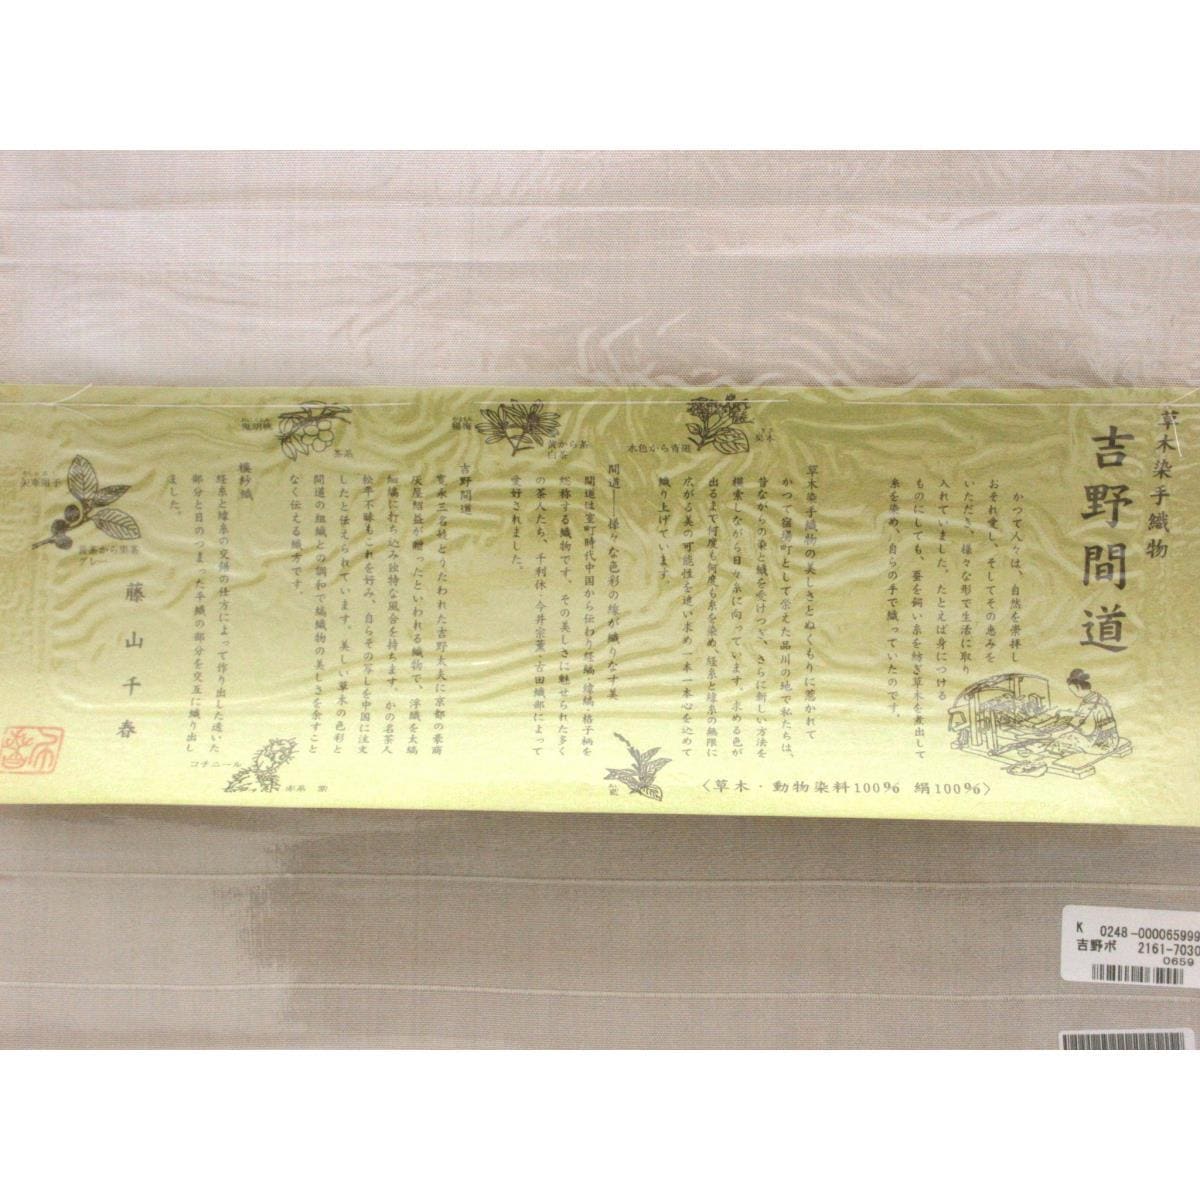 草木染手織物
吉野間道
かつて人々は、自然を崇拝し
おそれ愛し、そしてその恵みを
いただき、様々な形で生活に取り
入れていました。たとえば身につける
ものにしても、蚕を飼い糸を紡ぎ草木を煮出して
糸を染め、自らの手で織っていたのです。
〈草木・動物染料100% 絹100%〉
草木染手織物の美しさとぬくもりに惹かれて
かつて宿場町として栄えた品川の地で私たちは、
昔ながらの染と織を受けつぎ、さらに新しい方法を
模索しながら日々糸に向っています。求める色が
出るまで何度も何度も糸を染め、経糸と緯糸の無限に
広がる美の可能性を追い求め一本一本心を込めて
織り上げています。
水色から青緑
間道――様々な色彩の縞が織りなす美
間道は室町時代中国から伝わり経縞・緯縞・格子柄を
総称する織物です。その美しさに魅せられた多く
の茶人たち、千利休・今井宗薫・古田織部によって
愛好されました。
黄から茶
白茶
楊梅
吉野間道
寛永三名妓とうたわれた吉野太夫に京都の豪商
灰屋紹益が贈ったといわれる織物で、浮織を太縞
細縞に打ち込み独特な風合を持ちます。かの名茶人
松平不昧もこれを好み、自らその写しを中国に注文
したと伝えられています。美しい草木の色彩と
間道の組織との調和で縞織物の美しさを余すこと
なく伝える織方です。
茶系
鬼胡桃
赤系 紫
コチニール
横紗織
経糸と緯糸の交錯の仕方によって作り出した透いた
部分と目のつまった平織の部分を交互に織り出し
ました。
黄茶から黒茶
グレー
矢車附子
藤山千春
K 0248-000065999
吉野ポ 2161-7030
0659